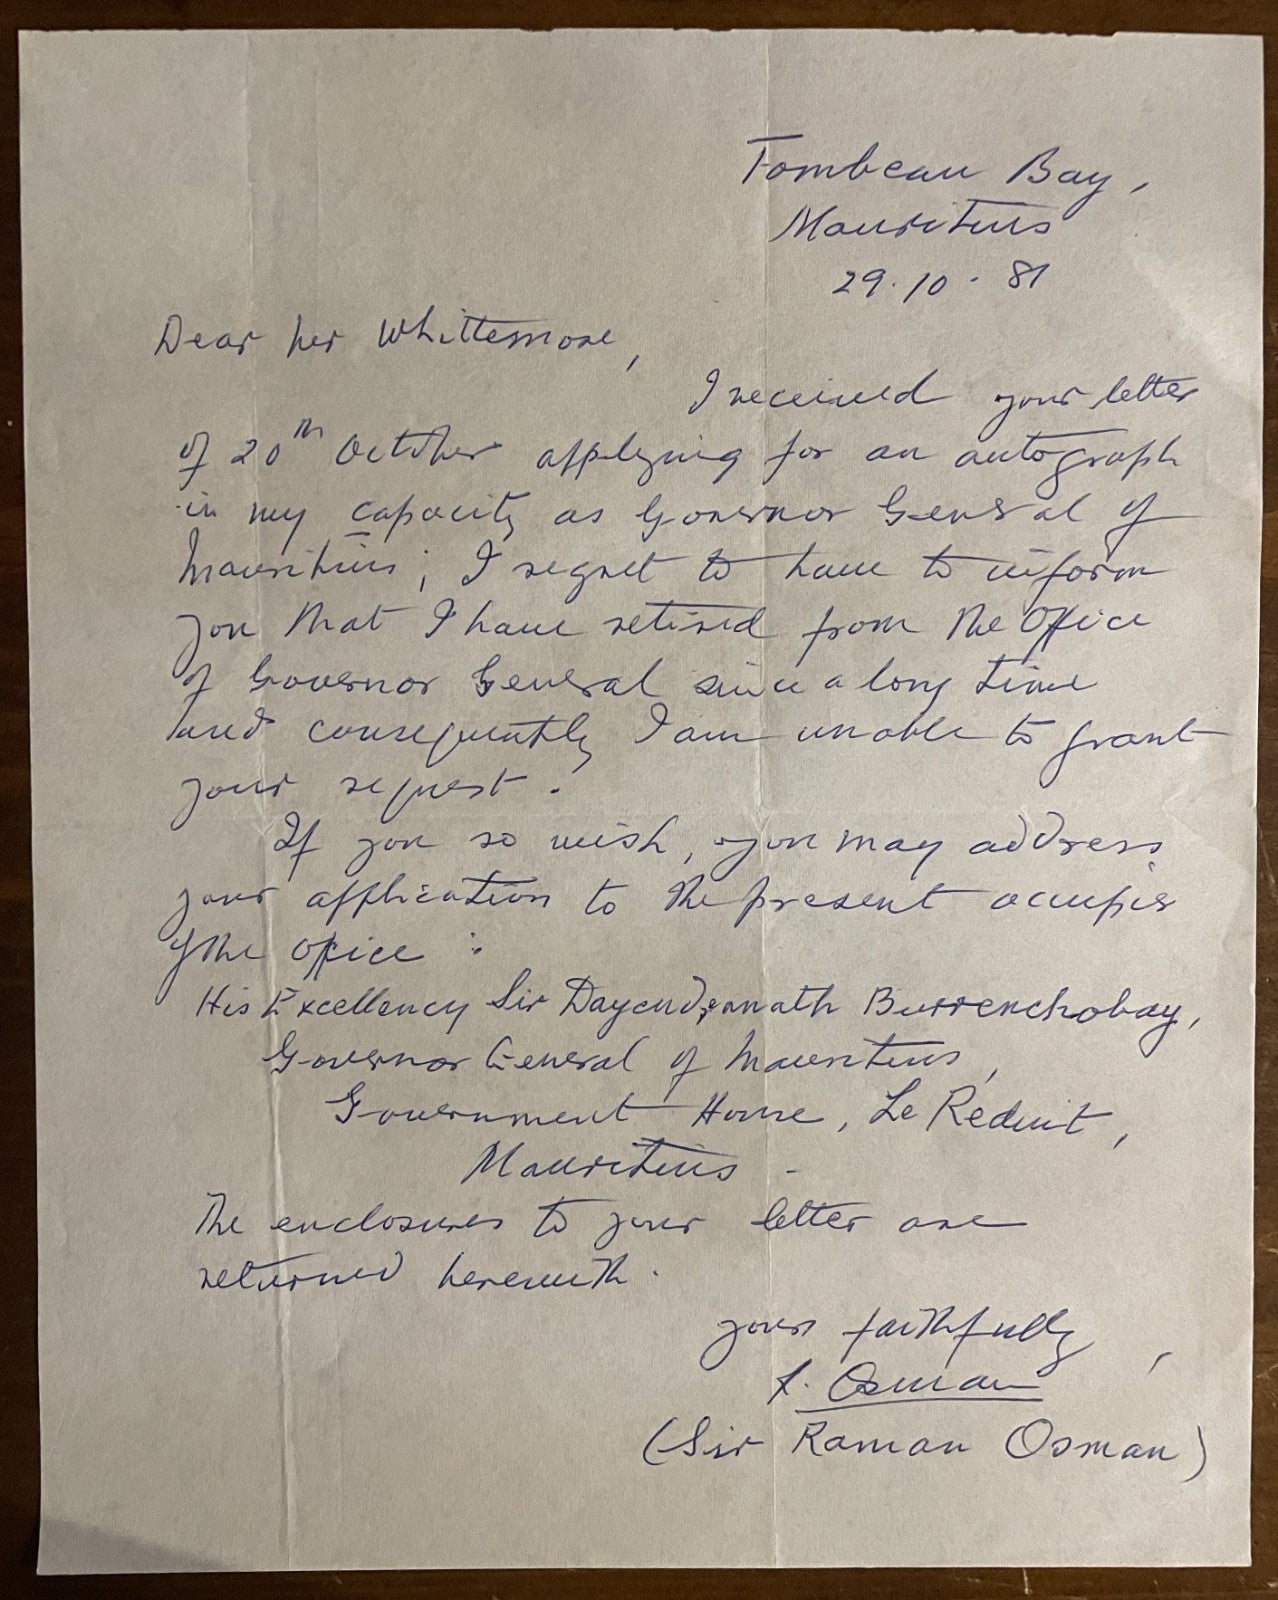 Tombeau Bay,
Mauritius
29.10.81
Dear Mr Whittemore,
I received your letter
of 20th October applying for an autograph
in my capacity as Governor General of
Mauritius; I regret to have to inform
you that I have retired from the Office
of Governor General since a long time
and consequently I am unable to grant
your request.
If you so wish, you may address
your application to the present occupier
of the Office :
His Excellency Sir Dayendranath Burrenchobay,
Governor General of Mauritius,
Government House, Le Reduit,
Mauritius -
The enclosures to your letter are
returned herewith.
yours faithfully,
R. Osman
(Sir Raman Osman)